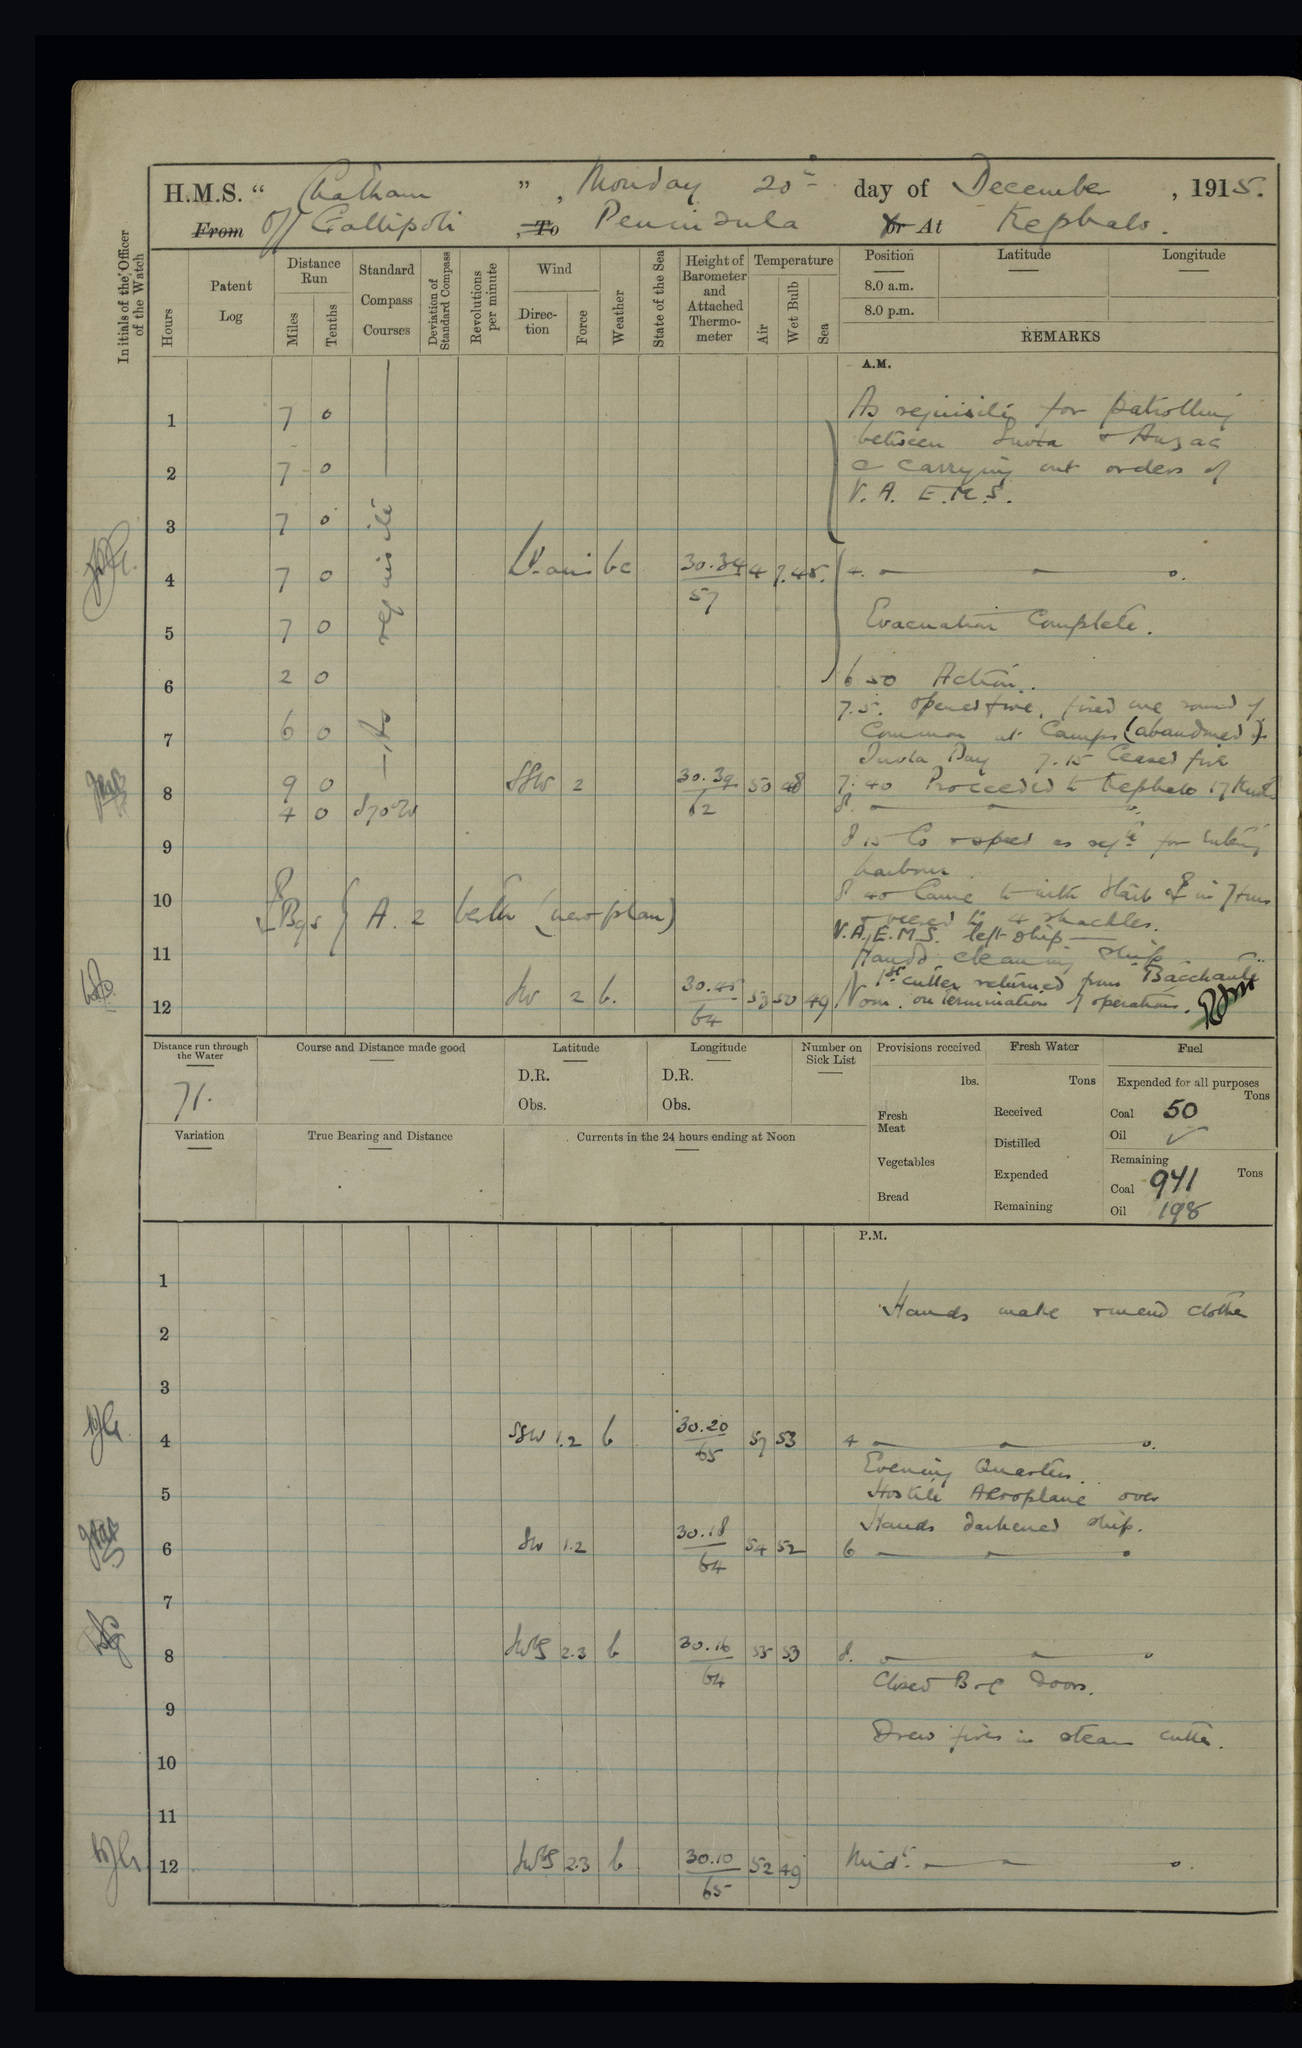 H.M.S. " Chatham ", Monday 20th day of December, 1915.
From Off Gallipoli , To Peninsula or At Kephalo.
Initials of the Officer of the Watch
Hours
Patent Log
Distance Run
Miles
Tenths
Standard Compass Courses
Deviation of Standard Compass
Revolutions per minute
Wind
Direction
Force
Weather
State of the Sea
Height of Barometer and Attached Thermometer
Temperature
Air
Wet Bulb
Sea
Position
Latitude
Longitude
8.0 a.m.
8.0 p.m.
REMARKS
A.M.
1 7 0 As requisite for patrolling
between Suvla & Anzac
2 7 0 & carrying out orders of
V. A. E.M.S.
3 7 0 requisite
4 7 0 bc 30.34 57 47. 45. 4.
5 7 0 Evacuation Complete.
6 2 0 6 50 Action.
7.5. opened fire, fired one round of
7 6 0 Common at Camps (abandoned)
Suvla Bay 7.15 Ceased fire
8 9 0 SSW 2 30.39 62 50 48 7.40 Proceeded to Kephalo 17 Knots
4 0 S70W 8.
9 8 15 Co & speed as reqte for entering
harbour.
10 8 40 Came to with Starb in 7 fms
A. 2 berth (new plan) & veered to 4 shackles.
V.A.E.M.S. left ship
11 Hands cleaning ship
1st cutter returned from "Bacchante"
12 SW 2 b. 30.45 64 53 50 49 Noon. on termination of operations.
Distance run through the Water
71.
Course and Distance made good
Latitude
D.R.
Obs.
Longitude
D.R.
Obs.
Number on Sick List
Provisions received
lbs.
Fresh Meat
Vegetables
Bread
Fresh Water
Tons
Received
Distilled
Expended
Remaining
Fuel
Expended for all purposes
Tons
Coal 50
Oil ✓
Remaining
Tons
Coal 941
Oil 198
Variation
True Bearing and Distance
Currents in the 24 hours ending at Noon
P.M.
1
Hands make & mend clothes
2
3
4 SSW 1.2 b 30.20 65 57 53 4
Evening Quarters.
5 Hostile Aeroplane over
Hands darkened ship.
6 SW 1.2 30.18 64 54 52 6
7
8 SWbS 2.3 b 30.16 64 55 53 8.
Closed B & C Doors.
9
Drew fires in steam cutter.
10
11
12 SWbS 2.3 b 30.10 65 52 49 Midt.